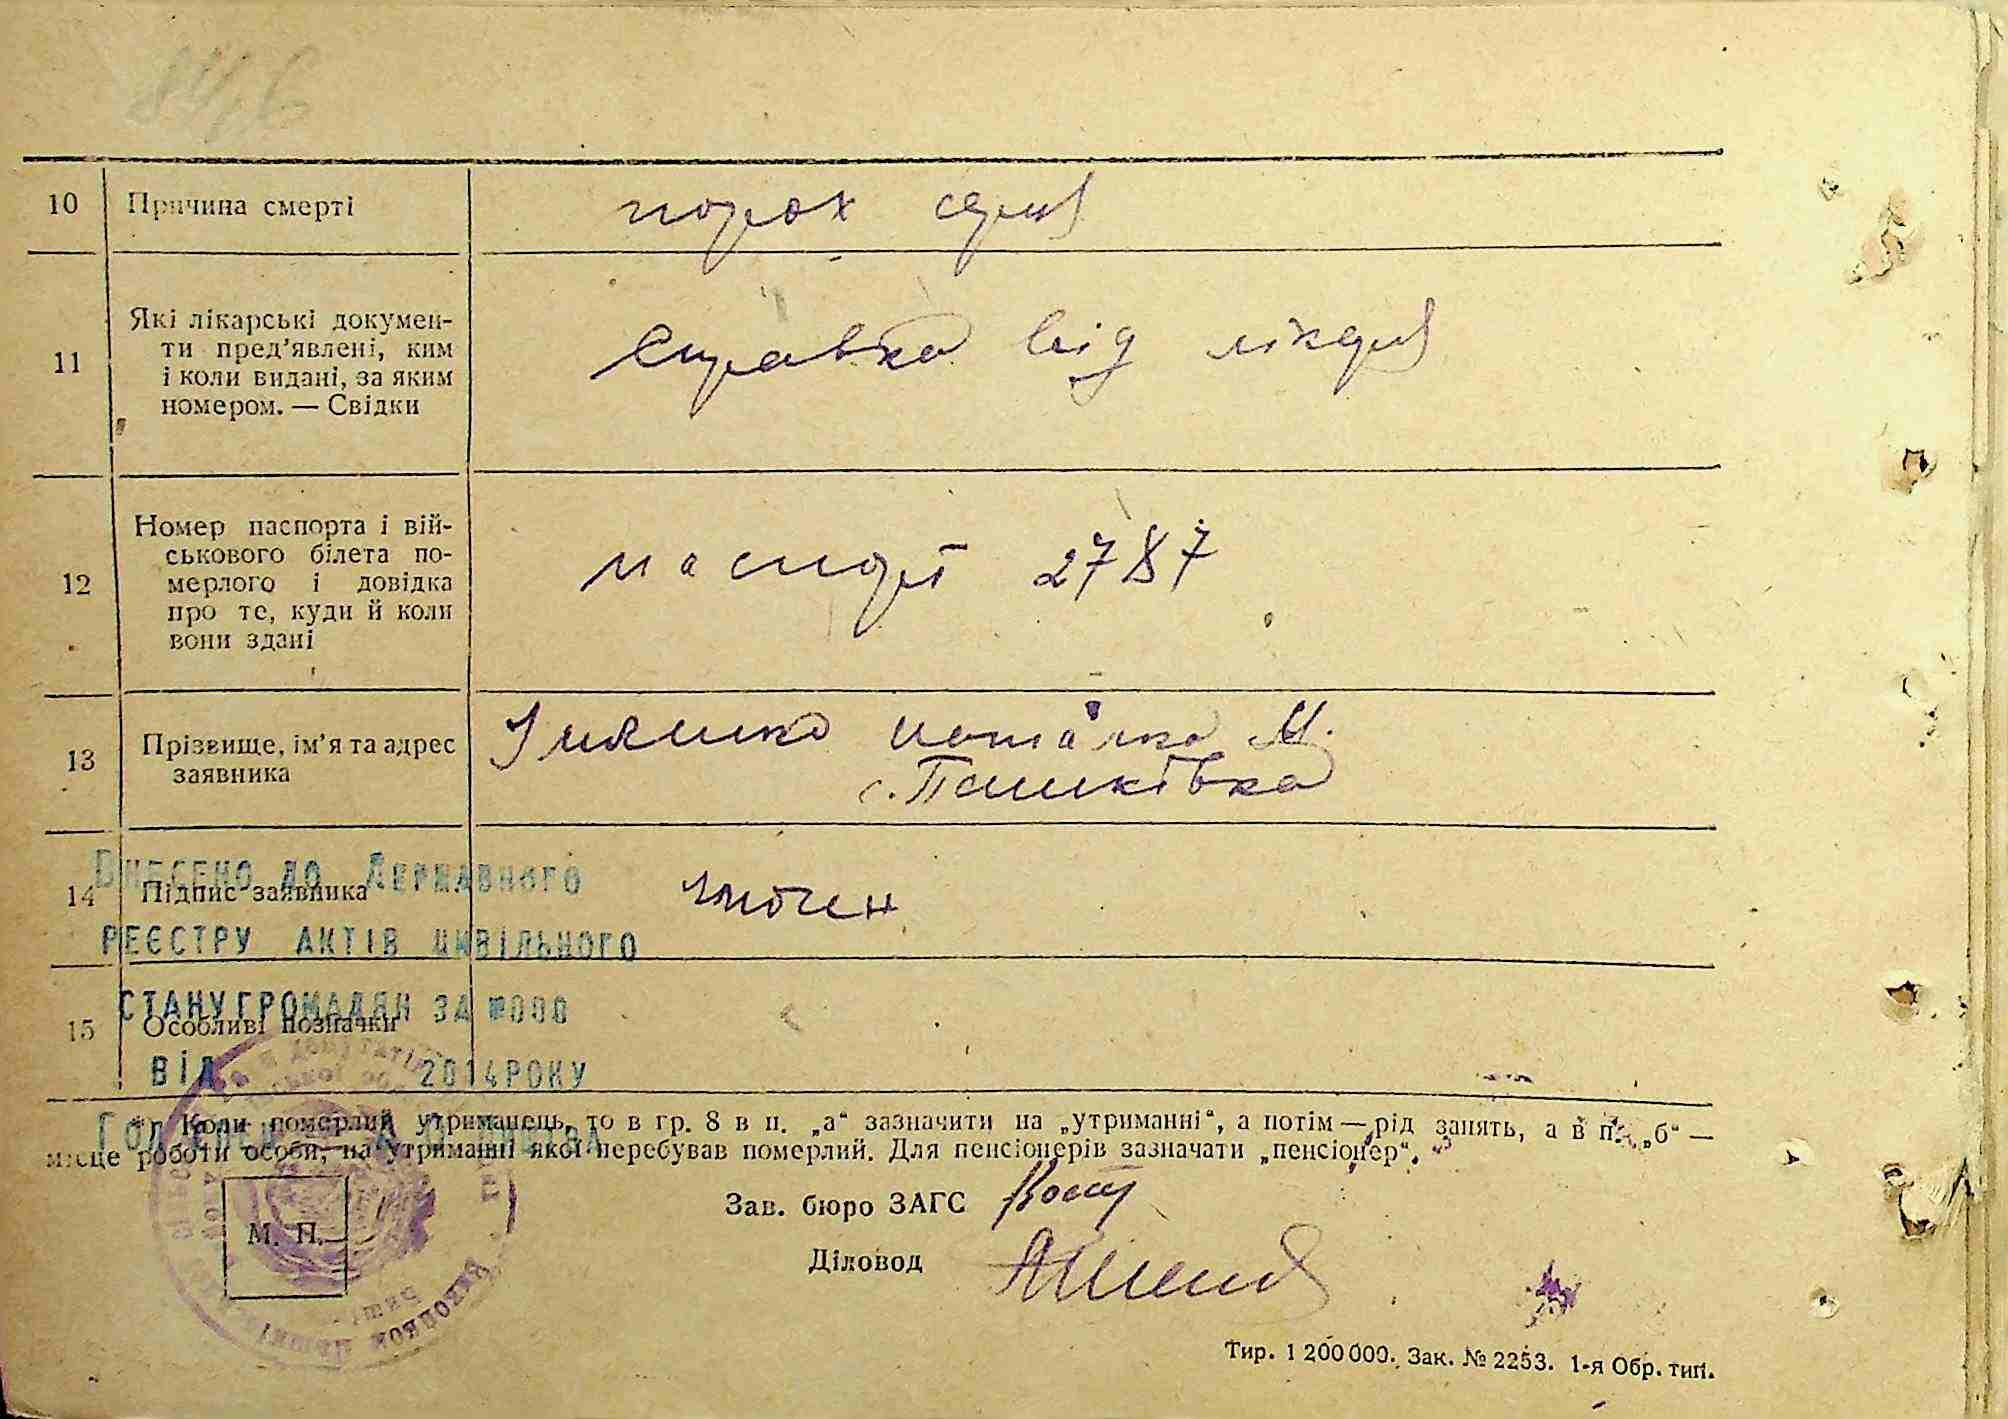 10 Причина смерті порок серця
11 Які лікарські докумен-
ти пред'явлені, ким
і коли видані, за яким
номером. — Свідки
справка від лікаря
12 Номер паспорта і вій-
ськового білета по-
мерлого і довідка
про те, куди й коли
вони здані
паспорт 2787
13 Прізвище, ім'я та адрес
заявника
М.
с. Пашківка
14 Підпис заявника
15 Особливі позначки
Внесено до Державного
реєстру актів цивільного
стану громадян за №000
від 2014 року
* Коли померлий утриманець, то в гр. 8 в п. „а“ зазначити на „утриманні“, а потім — рід занять, а в п. „б“ —
місце роботи особи, на утриманні якої перебував померлий. Для пенсіонерів зазначати „пенсіонер“.
М. П.
Зав. бюро ЗАГС
Діловод
Тир. 1 200 000. Зак. № 2253. 1-я Обр. тип.